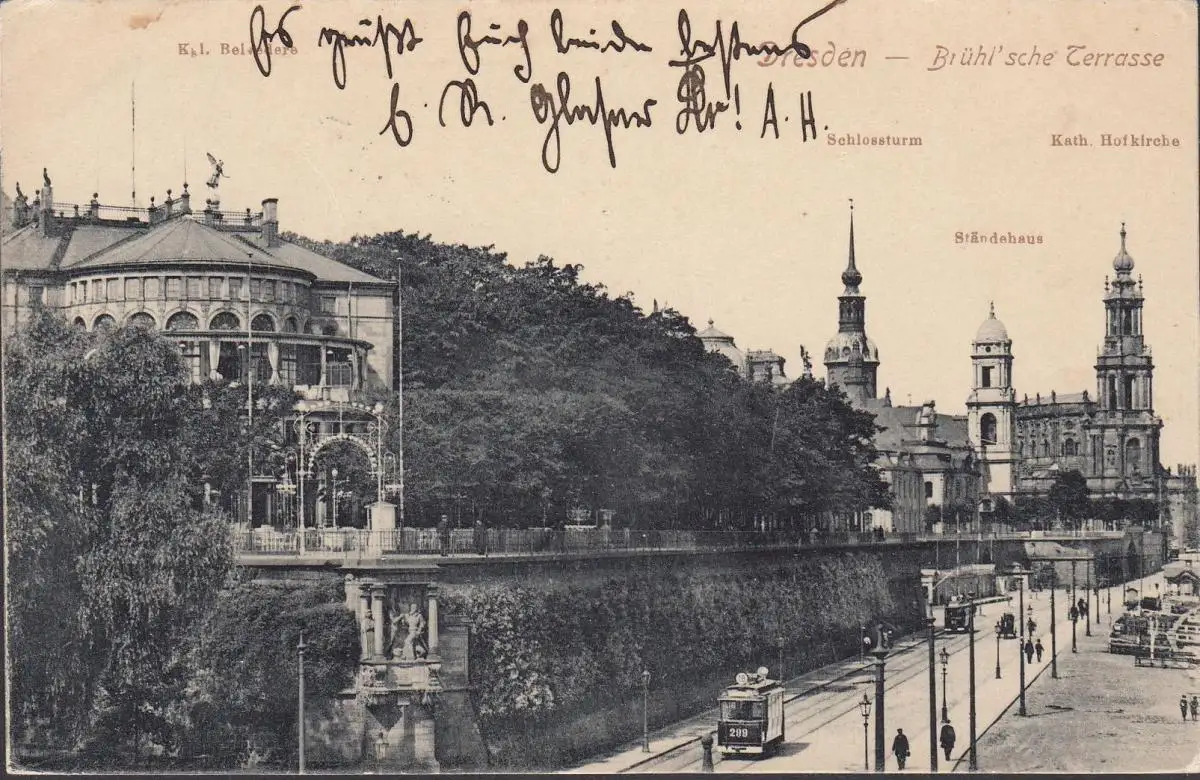 Es grüßt Euch beide bestens
Kgl. Belvedere
Dresden — Brühl'sche Terrasse
A. H.
Schlossturm
Kath. Hofkirche
Ständehaus
299